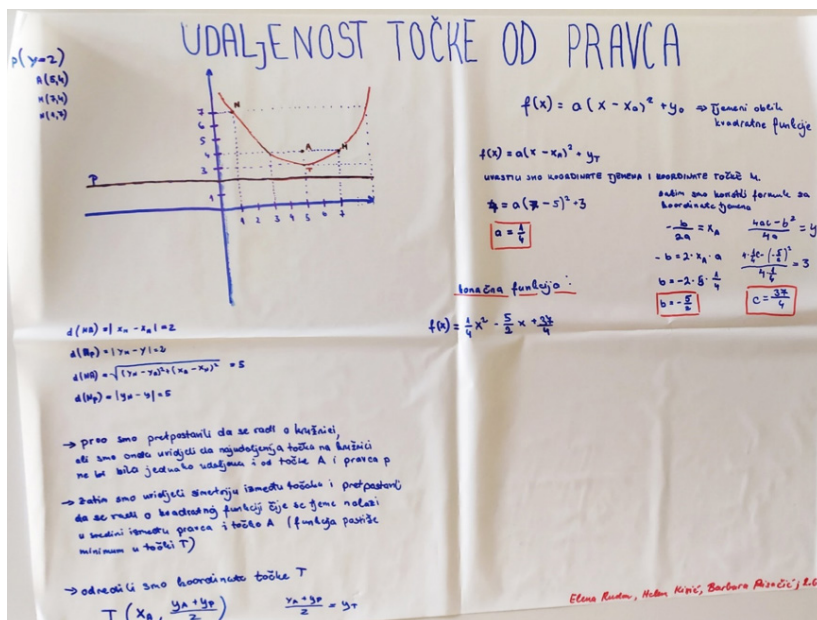 UDALJENOST TOČKE OD PRAVCA
p(y=2)
A(5,4)
M(7,4)
N(1,7)
7
6
5
4
3
1
N
A
M
T
P
x
1 2 3 4 5 6 7
f(x) = a(x - x₀)² + y₀ ⇒ tjemeni oblik
kvadratne funkcije
f(x) = a(x - x_A)² + y_T
UVRSTILI SMO KOORDINATE TJEMENA I KOORDINATE TOČKE
= a( - 5)² + 3
a = 1/4
zatim smo koristili formule za
koordinate tjemena
-b/2a = x_A
(4ac - b²)/4a = y
-b = 2 · x_A · a
b = -2 · 5 · 1/4
b = -5/2
(4 · 1/4 c - (-5/2)²)/(4 · 1/4) = 3
c = 37/4
konačna funkcija:
f(x) = 1/4 x² - 5/2 x + 37/4
= 2
= 2
= 5
= 5
→ prvo smo pretpostavili da se radi o kružnici,
ali smo onda uvidjeli da najudaljenija točka na kružnici
ne bi bila jednako udaljena i od točke A i pravca p
→ zatim smo uvidjeli simetriju između točaka i pretpostavili
da se radi o kvadratnoj funkciji čije se tjeme nalazi
u sredini između pravca i točke A (funkcija postiže
minimum u točki T)
→ odredili smo koordinate točke T
T(x_A, (y_A + y_P)/2)
(y_A + y_P)/2 = y_T
Elena Helen Barbara